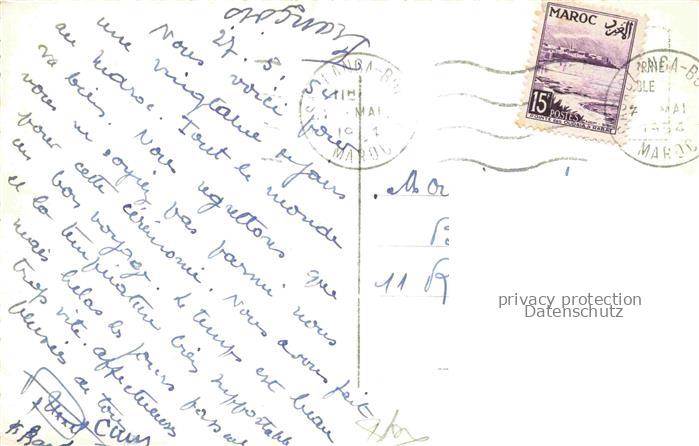 27. 5. 54
Nous voici pour
une vingtaine de jours
au Maroc. Tout le monde
va bien. Nous regrettons que
vous ne soyez pas parmi nous
pour cette cérémonie. Nous avons fait
un bon voyage. Le temps est beau
et la température bien supportable
mais hélas les jours passent
trop vite. affectueuses
pensées de tous
MAROC
15F
POSTES
MAROC
MAI
MAROC
MAI
11 R
privacy protection
Datenschutz